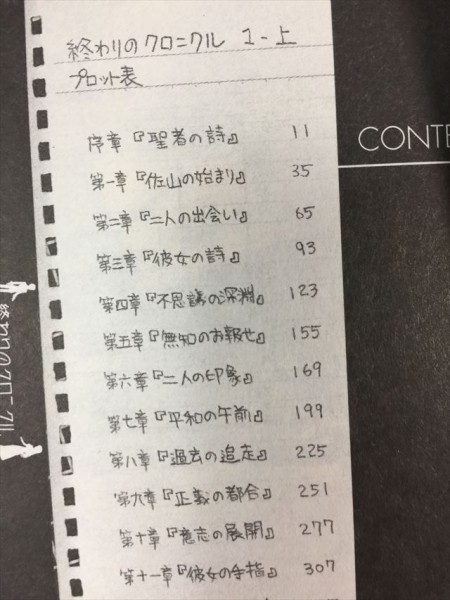 終わりのクロニクル 1-上
プロット表
序章『聖者の詩』 11
第一章『佐山の始まり』 35
第二章『二人の出会い』 65
第三章『彼女の詩』 93
第四章『不思議の深淵』 123
第五章『無知のお報せ』 155
第六章『二人の印象』 169
第七章『平和の午前』 199
第八章『過去の追走』 225
第九章『正義の都合』 251
第十章『意志の展開』 277
第十一章『彼女の手指』 307
CONTE
終わりのクロニクル